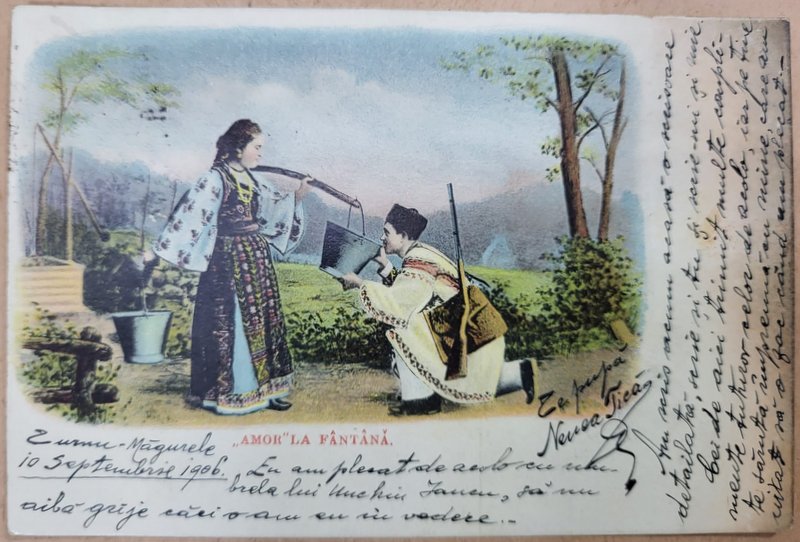 „AMOR" LA FÂNTÂNĂ.
Turnu-Măgurele
10 Septembrie 1906.
Eu am plecat de acolo cu um-
brela lui Unchiu Iancu, să nu
aibă grije căci o am eu in vedere.-
Te pupă
Nenea Tică
Am scris acum acasă o scrisoare
detailată, scrie și tu și scrie-mi și mie.
Cei de aici trimit multe compli-
mente tuturor celor de acolo, iar pe tine
te sărută împreună cu mine, care am
uitat să o fac când am plecat.-